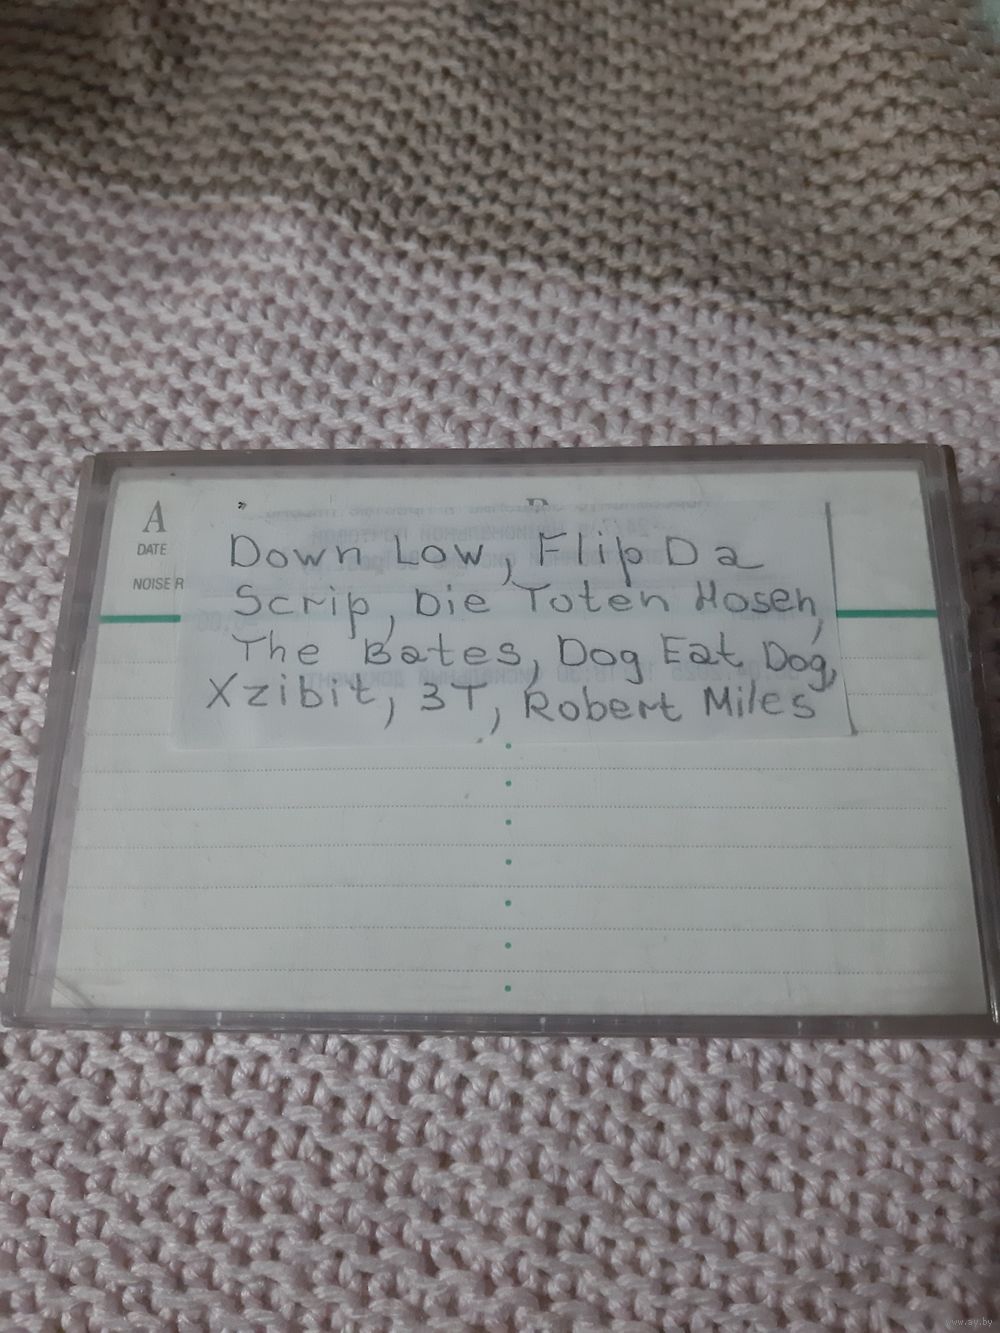 A
DATE
NOISE R
Down Low, Flip Da
Scrip, Die Toten Hosen,
The Bates, Dog Eat Dog,
Xzibit, 3T, Robert Miles
www.ay.by